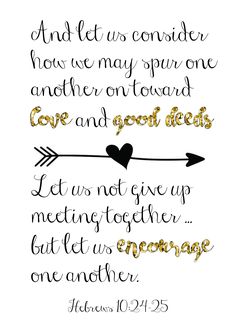 And let us consider
how we may spur one
another on toward
love and good deeds
Let us not give up
meeting together ...
but let us encourage
one another.
Hebrews 10:24-25